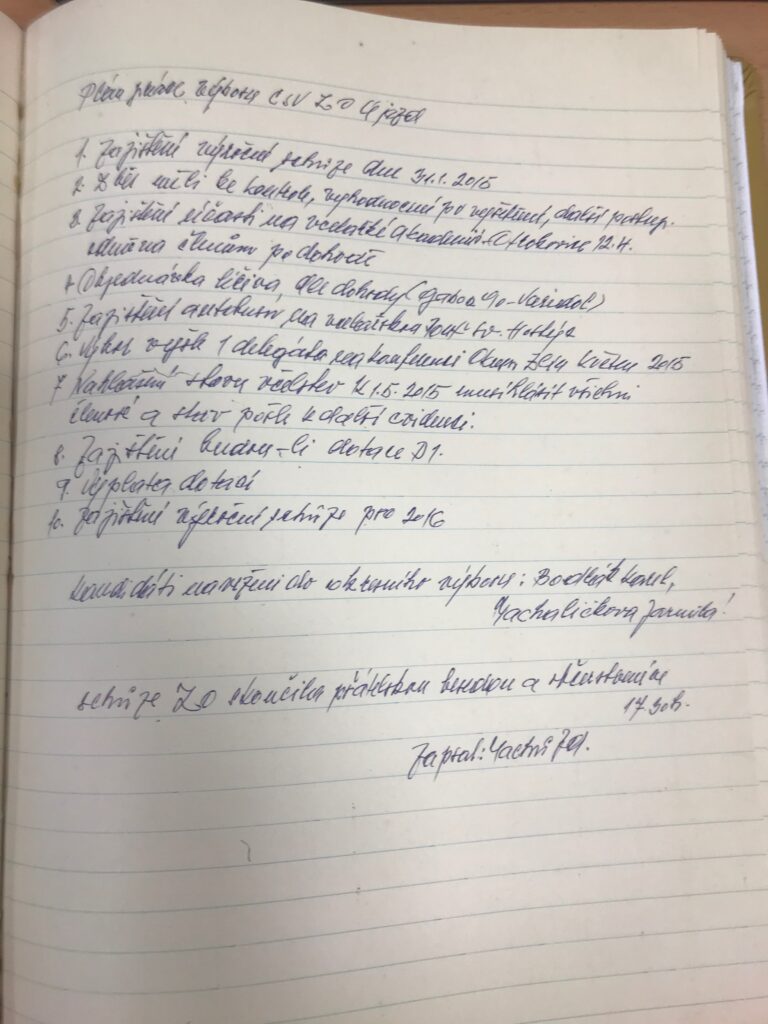 Plán práce výboru ČSV ZO Újezd
1. Zajištění výroční schůze dne 31.1. 2015
2. Sběr měli ke kontrole, vyhodnocení po vyšetření, další postup.
3. Zajištění účasti na včelařské akademii 12.4.
členům po dohodě
4. Objednávka léčiva, dle dohody (Gabon 90 - Varidol)
5. Zajištění autobusu na valašskou pouť sv. Hostýn
6. Výbor vyšle 1 delegáta na konferenci okresu Zlín květen 2015
7. Nahlášení stavu včelstev k 1.5. 2015 musí hlásit všichni
členové a stav pošle k další evidenci.
8. Zajištění budou-li dotace D1.
9. Výplata dotací
10. Zajištění výroční schůze pro 2016
Kandidáti navrženi do okresního výboru: Karel,
Jarmila
schůze ZO skončila přátelskou besedou a občerstvením
17.30h.
Zapsal: